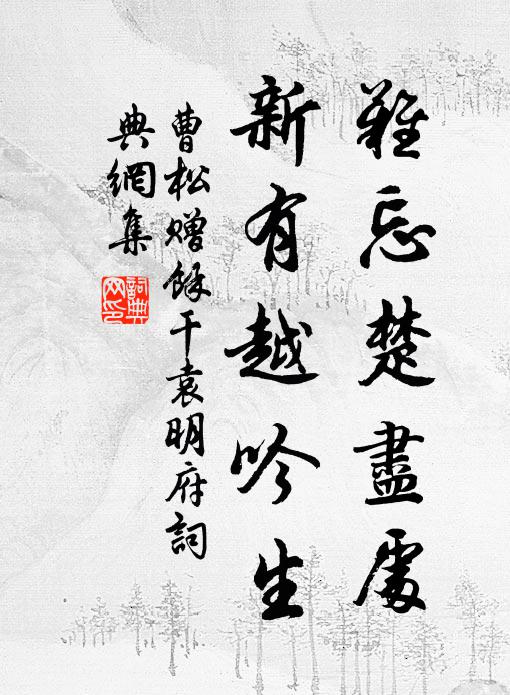 難忘楚盡處
新有越吟生
曹松贈餘干袁明府詞
典網集
詞典网印